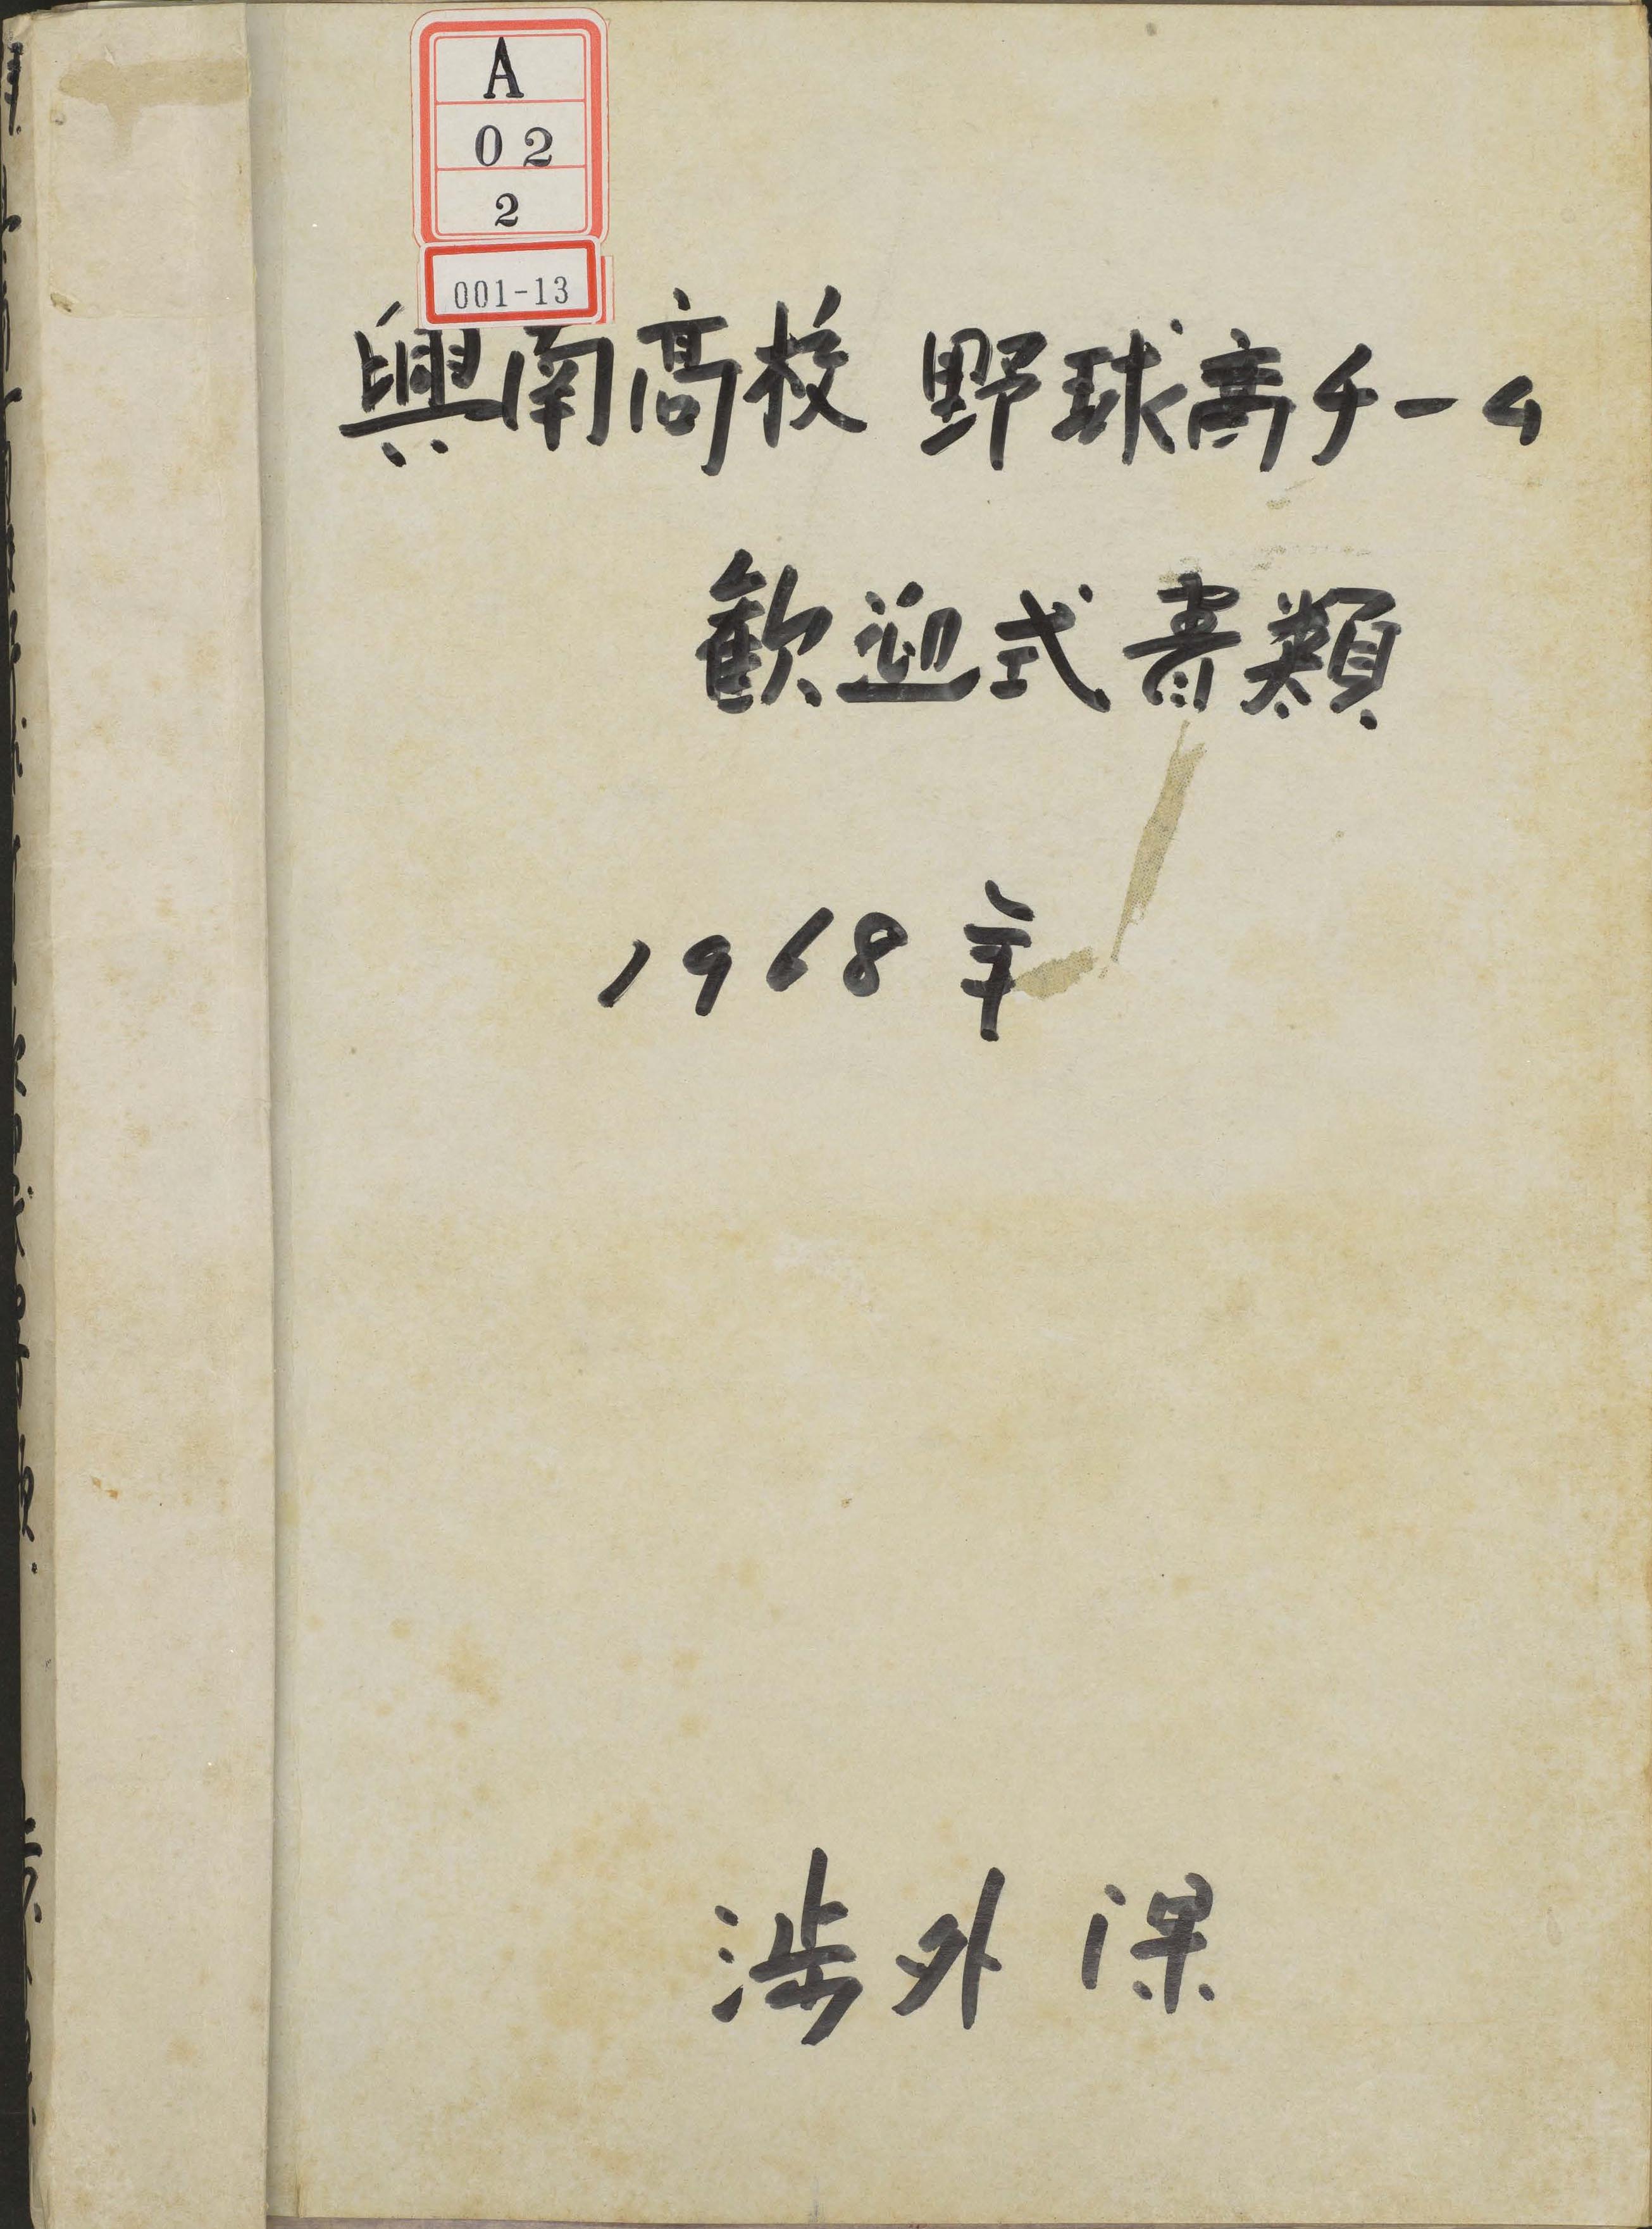 A
02
2
001-13
興南高校 野球高チーム
歓迎式書類
1968年
渉外課